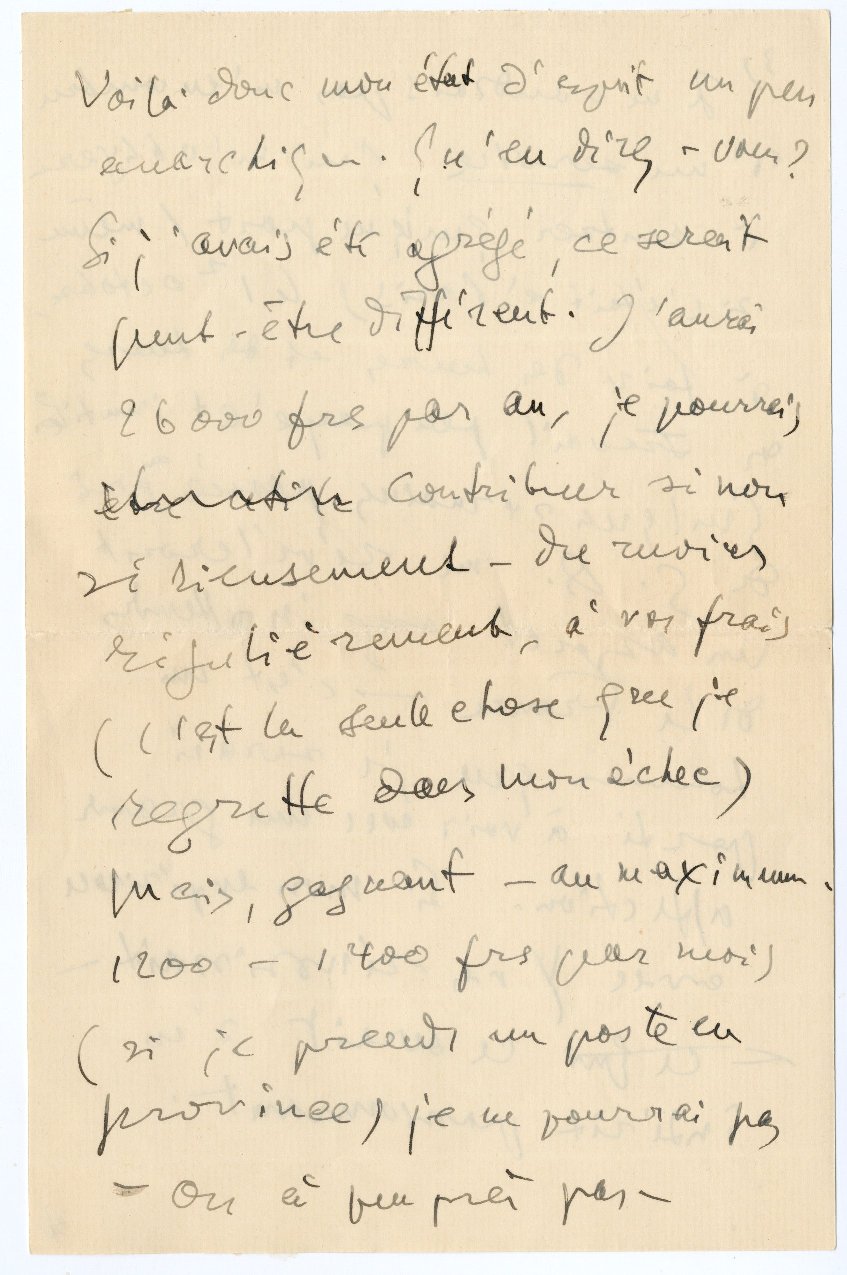 Voilà donc mon état d'esprit un peu
anarchique. Qu'en direz-vous?
Si j'avais été agrégé, ce serait
peut-être différent. J'aurai
26000 frs par an, je pourrais
contribuer sinon
sérieusement – du moins
régulièrement, à vos frais
(c'est la seule chose que je
regrette dans mon échec)
mais, gagnant – au maximum.
1200 – 1400 frs par mois
(si je prends un poste en
province) je ne pourrai pas
– ou à peu près pas –